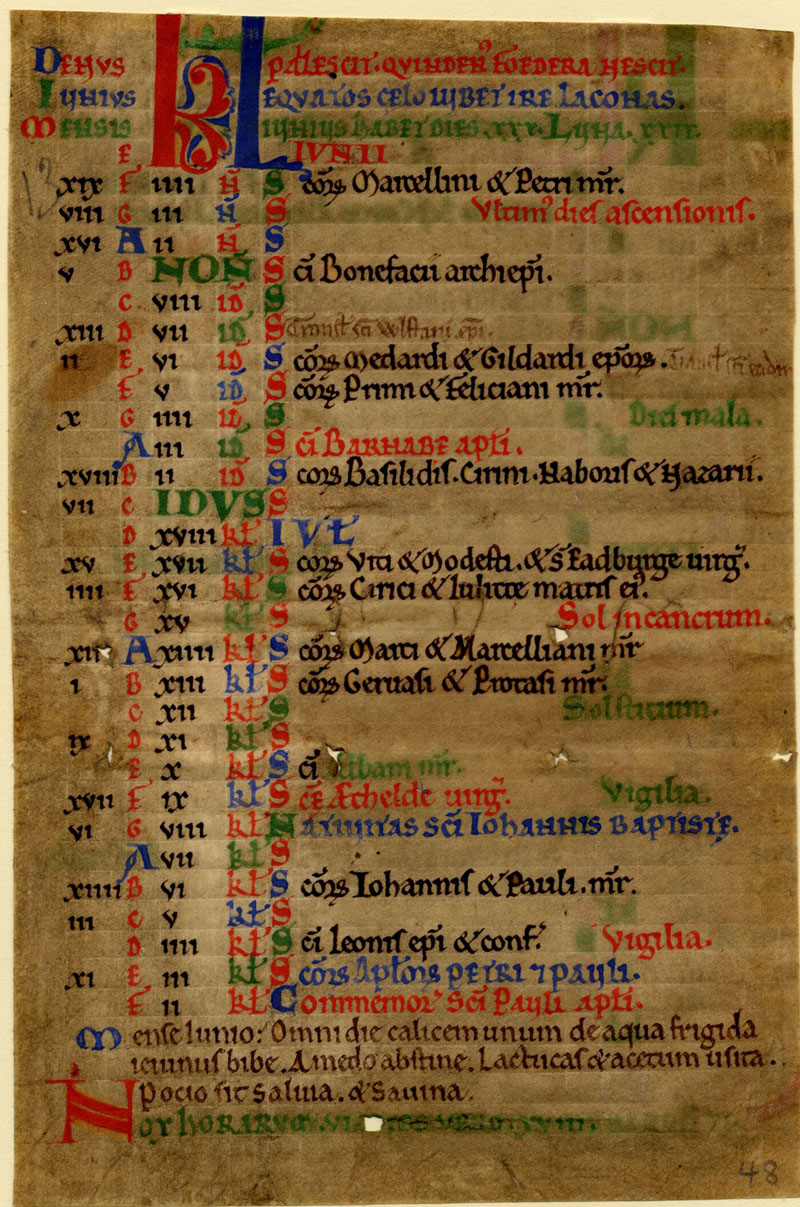 DENUS pallescit. QUINDEN' FOEDERA NESCIT.
IUNIUS EQUATOS CELO IUBET IRE LACONAS.
MENSIS IUNIUS HABET DIES. XXX. LUNA. XXIX.
KL E IUNII
xix F iiii N S cōꝝ Marcellini & Petri mr̄.
viii G iii N S Vltim' dies ascensionis.
xvi A ii N S
v B NON S cī Bonefacii archiep̄i.
C viii ID S
xiii D vii ID S Transl' scī Wlstani. ep̄i.
ii E vi ID S cōꝝ Medardi & Gildardi ep̄oꝝ. Transl' scī
F v ID S cōꝝ Primi & Feliciani mr̄.
x G iiii ID S Dies mala.
A iii ID S cī BARNABE apłi.
xviii B ii ID S coꝝ Basilidis. Cirini. Naboris & Nazarii.
vii C IDUS S
D xviii kł IUŁ
xv E xvii kł S coꝝ Viti & Modesti. & s' Eadburge uirg̃.
iiii F xvi kł S cōꝝ Cirici & Iulitte matris ei'.
G xv kł S Sol in cancrum.
xii A xiiii kł S cōꝝ Marci & Marcelliani mr̄
i B xiii kł S cōꝝ Geruasi & Protasi mr̄.
C xii kł S Solstitium.
ix D xi kł S
E x kł S cī Albani mr̄.
xvii F ix kł S cē Ætheldr̄e uirg̃. Vigilia.
vi G viii kł NATIUITAS SCĪ IOHANNIS BAPTISTE.
A vii kł S
xiiii B vi kł S cōꝝ Iohannis & Pauli. mr̄.
iii C v kł S
D iiii kł S cī Leonis ep̄i & conf̄. Vigilia.
xi E iii kł S cōꝝ Apłoꝝ PETRI ⁊ PAULI.
F ii kł Commemor' Scī Pauli apłi.
Mense Iunio: Omni die calicem unum de aqua frigida
ieiunus bibe. A medo abstine. Lactucas & acetum usita.
Pocio sit Saluia. & Sauina.
NOX HORARUM. VI. DIES UERO. XVIII.
13
48